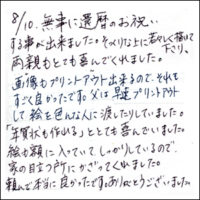 8/10. 無事に還暦のお祝い
する事が出来ました。そっくりな上に若々しく描けて下さり、
両親もとても喜んでくれました。
画像もプリントアウト出来るので、それも
すごく良かったです。父は早速プリントアウト
して絵を色んな人に渡したりしていました。
「年賀状も作れる」ととても喜んでいました。
絵も額に入っていてしっかりしているので、
家の目立つ所にかざってくれました。
頼んで本当に良かったです。ありがとうございました。